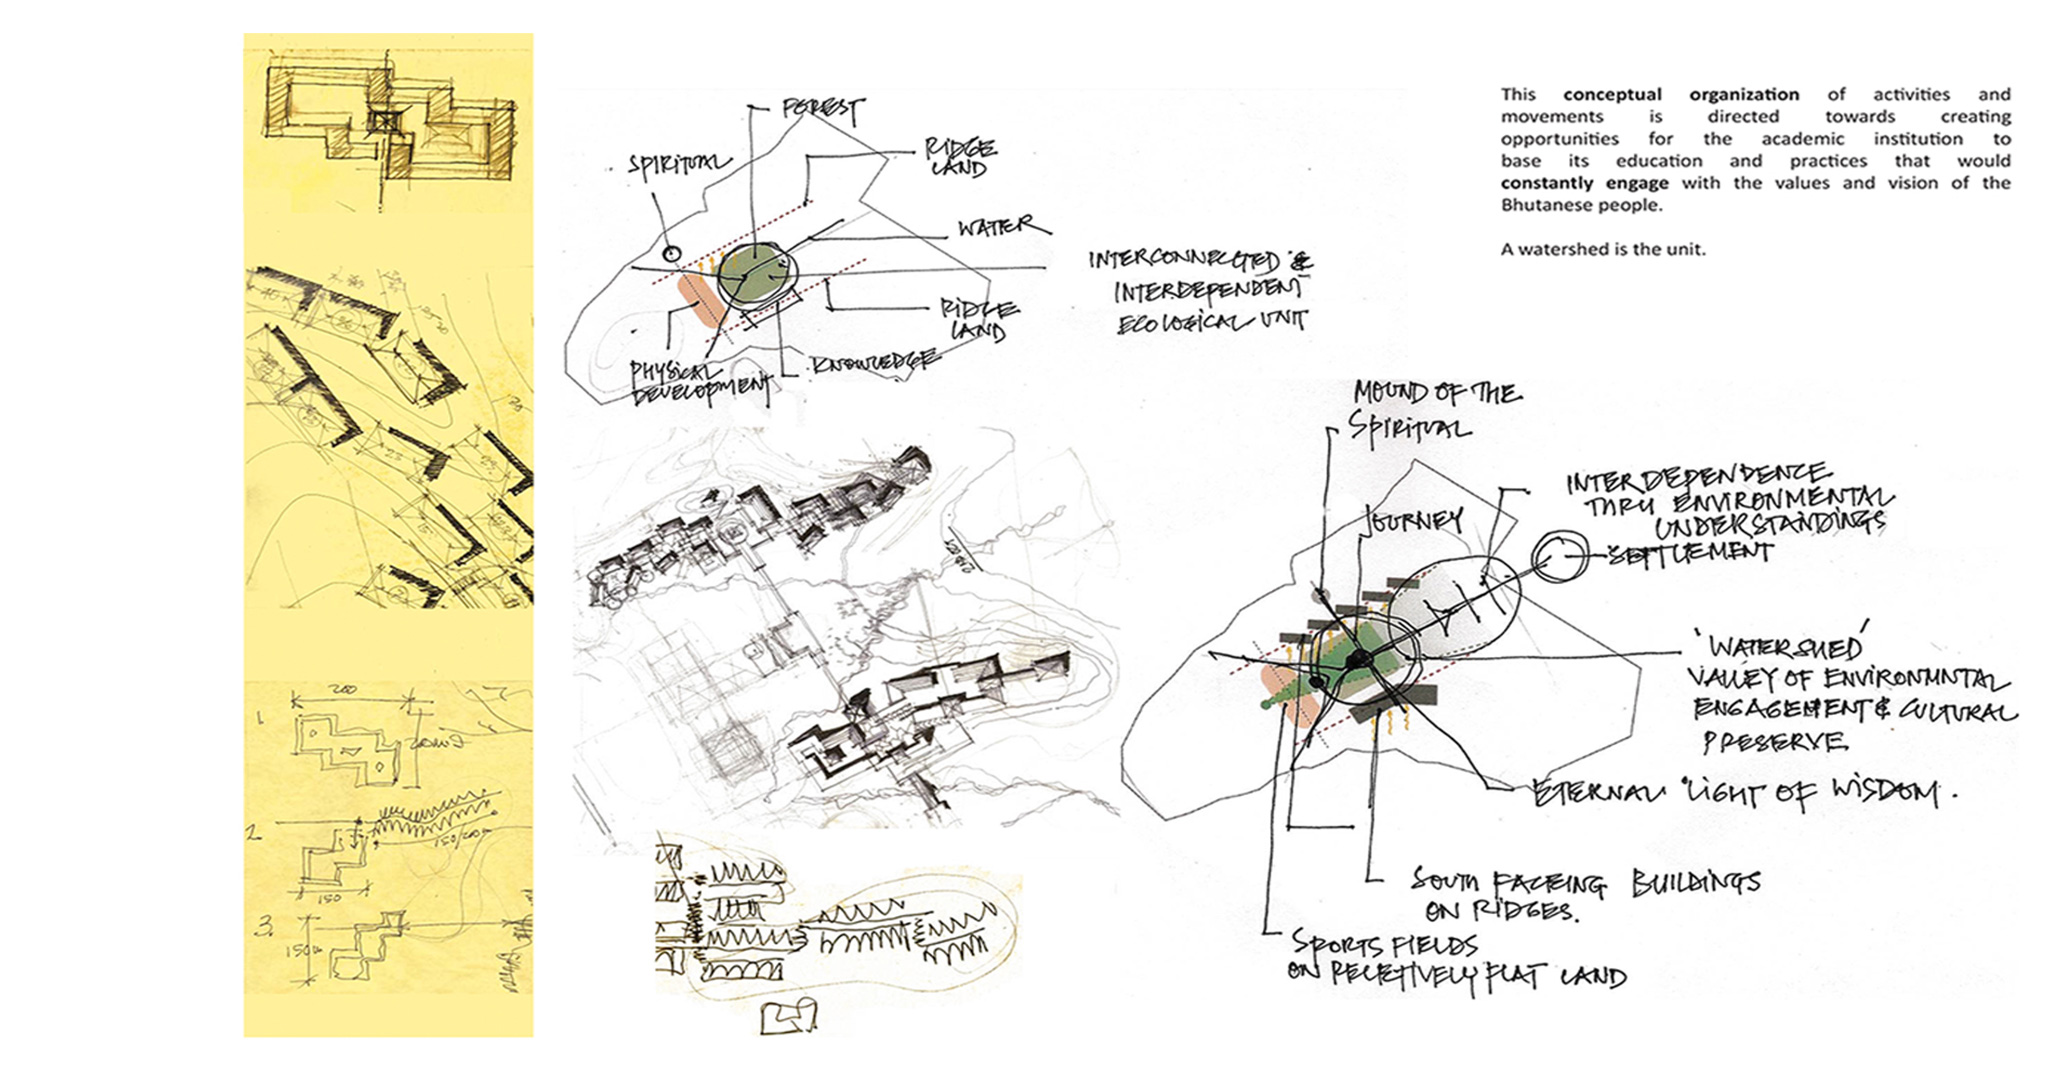 This conceptual organization of activities and
movements is directed towards creating
opportunities for the academic institution to
base its education and practices that would
constantly engage with the values and vision of the
Bhutanese people.
A watershed is the unit.
FOREST
SPIRITUAL
RIDGE
LAND
WATER
INTERCONNECTED &
INTERDEPENDENT
ECOLOGICAL UNIT
RIDGE
LAND
PHYSICAL
DEVELOPMENT
KNOWLEDGE
MOUND OF THE
SPIRITUAL
JOURNEY
INTERDEPENDENCE
THRU ENVIRONMENTAL
UNDERSTANDINGS
SETTLEMENT
'WATERSHED'
VALLEY OF ENVIRONMNTAL
ENGAGEMENT & CULTURAL
PRESERVE
ETERNAL 'LIGHT OF WISDOM.
SOUTH FACEING BUILDINGS
ON RIDGES.
SPORTS FIELDS
ON RELETIVELY FLAT LAND
200
1.
2.
150/200
150
3.
150